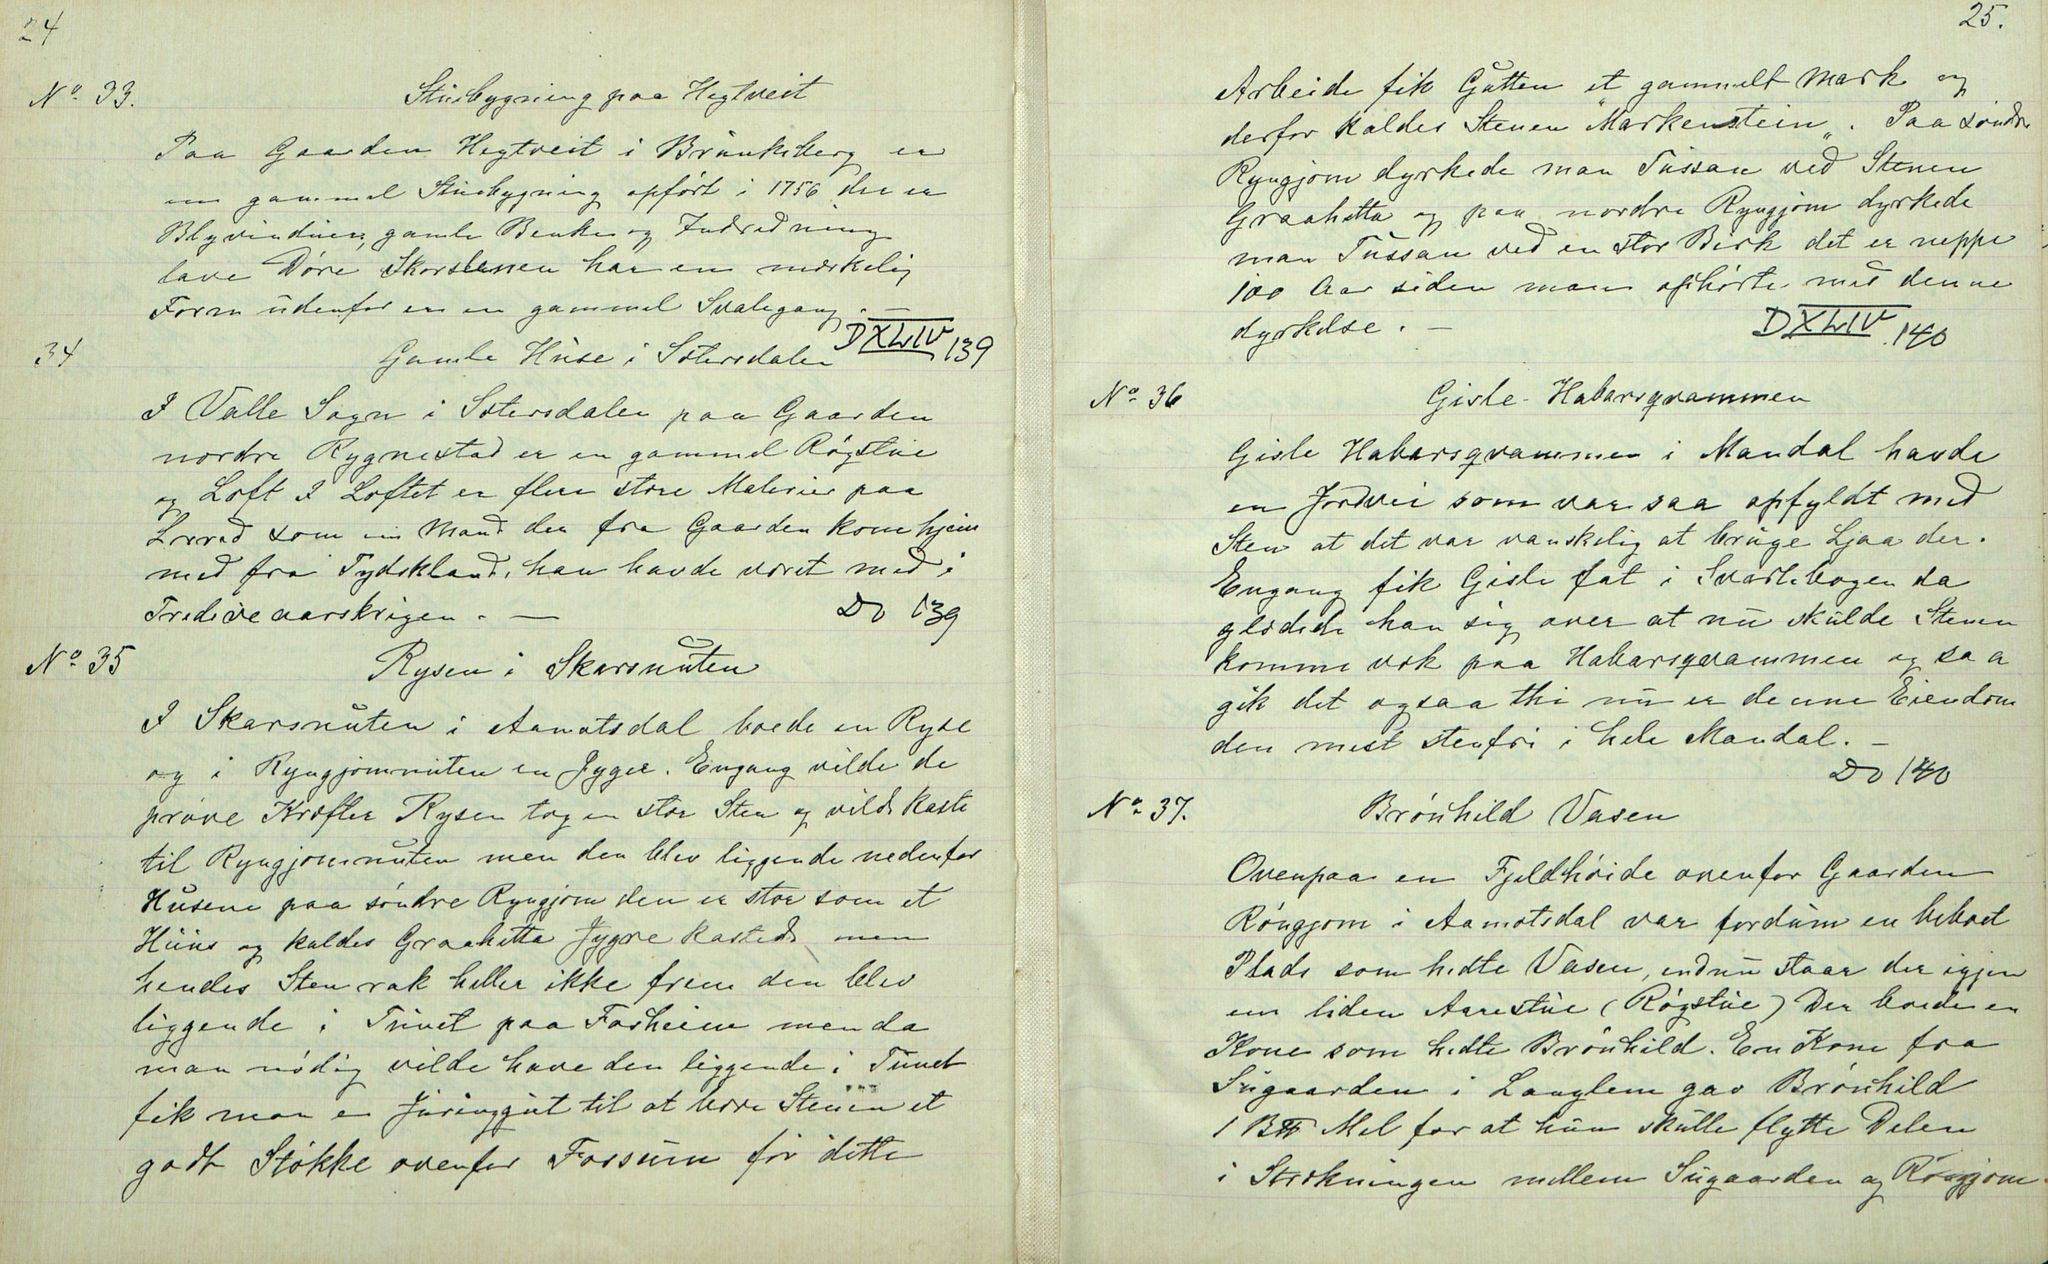 24
No. 33. Stuebygning paa Hegtveit
Paa Gaarden Hegtveit i Brunkeberg er
en gammel Stuebygning opført i 1756 der er
Blyvinduer, gamle Benke og Indredning
lave Døre Skorstenen har en mærkelig
Form udenfor er en gammel Svalegang. —
DXLIV 139
34 Gamle Huse i Sætersdalen
I Valle Sogn i Sætersdalen paa Gaarden
nordre Rygnestad er en gammel Røgstue
og Loft I Loftet er flere store Malerier paa
Lærred som en Mand der fra Gaarden kom hjem
med fra Tydskland, han havde været med i
Tredive aarskrigen. — Do 139
No. 35 Rysen i Skarsnuten
I Skarsnuten i Aamotsdal boede en Ryse
og i Ryngjomnuten en Jyger. Engang vilde de
prøve Kræfter Rysen tog en stor Sten og vilde kaste
til Ryngjomnuten men den blev liggende nedenfor
Husene paa søndre Ryngjom den er stor som et
Huus og kaldes Graahetta Jygre kastede men
hendes Sten rak heller ikke frem den blev
liggende i Tunet paa Forheim men da
man nødig vilde have den liggende i Tunet
fik man en Juringgut til at bære Stenen et
godt Støkke ovenfor Forsum før dette
25.
Arbeide fik Gutten et gammelt Mark og
derfor kaldes Stenen "Markenstein„. Paa søndre
Ryngjom dyrkede man Tussan ved Stenen
Graahetta og paa nordre Ryngjom dyrkede
man Tussan ved en stor Birk det er neppe
100 Aar siden man ophørte med denne
dyrkelse. — DXLIV 140
No. 36 Gisle Habarsqvammen
Gisle Habarsqvammen i Mandal havde
en Jordvei som var saa opfyldt med
Sten at det var vanskelig at bruge Ljaa der.
Engang fik Gisle fat i Svartebogen da
glædede han sig over at nu skulde Stenen
komme væk paa Habarsqvammen og saa
gik det ogsaa thi nu er denne Eiendom
den mest stenfri i hele Mandal. —
Do 140
No. 37. Brønhild Vasen
Ovenpaa en Fjeldhøide ovenfor Gaarden
Rønggjom i Aamotsdal var fordum en beboet
Plads som hedte Vasen, endnu staar der igjen
en liden Aarestue (Røgstue) Der boede en
Kone som hedte Brønhild. En Kone fra
Sugaarden i Langlem gav Brønhild
1 B℔ Mel for at hun skulle flytte Delen
i Strækningen mellem Sugaarden og Rønggjom.